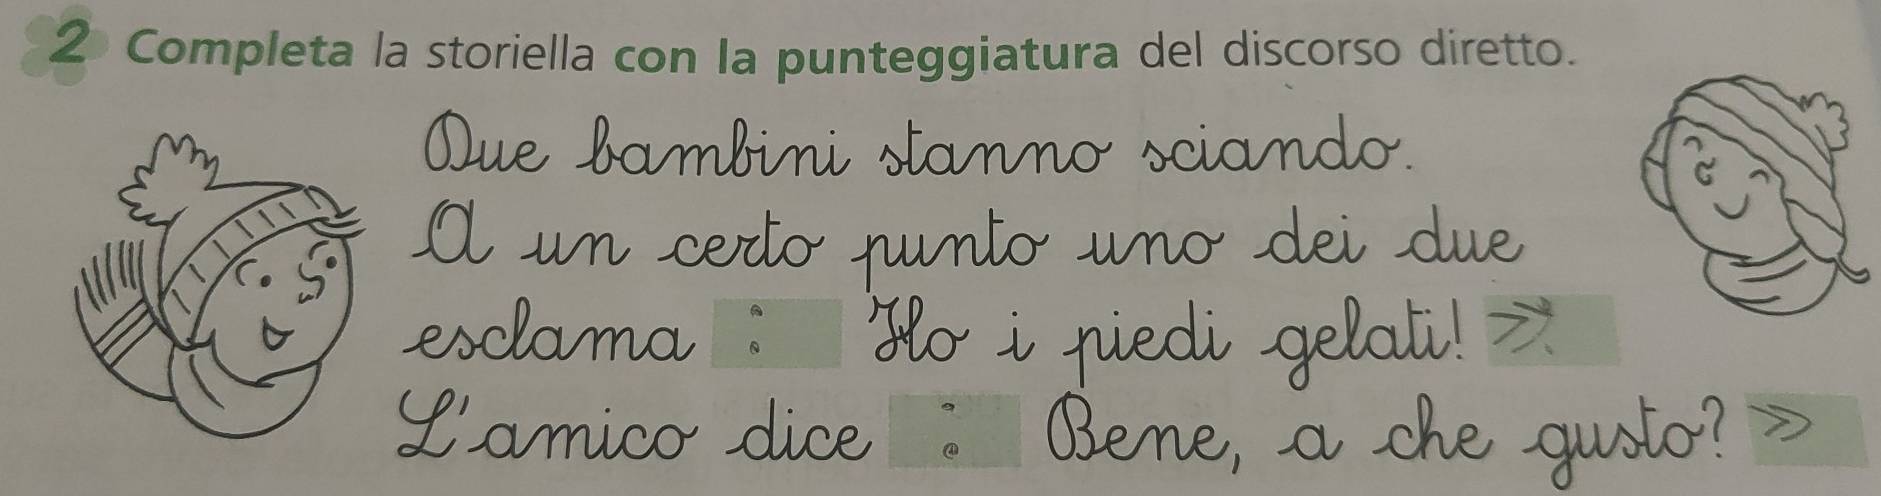 2 Completa la storiella con la punteggiatura del discorso diretto.
Due bambini stanno sciando.
A un certo punto uno dei due
esclama : Ho i piedi gelati! »
L'amico dice : Bene, a che gusto? »